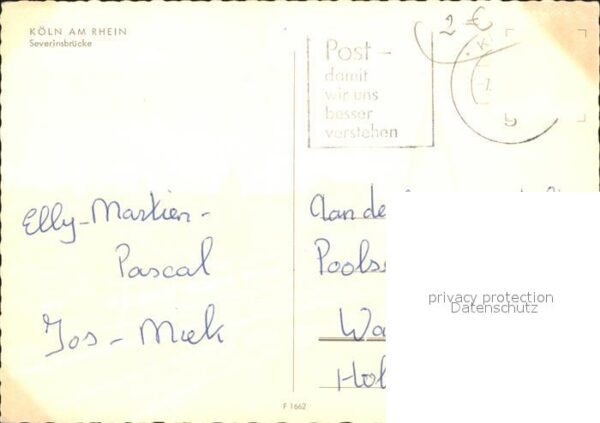 KÖLN AM RHEIN
Severinsbrücke
2 €
Post -
damit
wir uns
besser
verstehen
Elly-Martien-
Pascal
Jos - Miek
Aan de
F 1662
privacy protection
Datenschutz